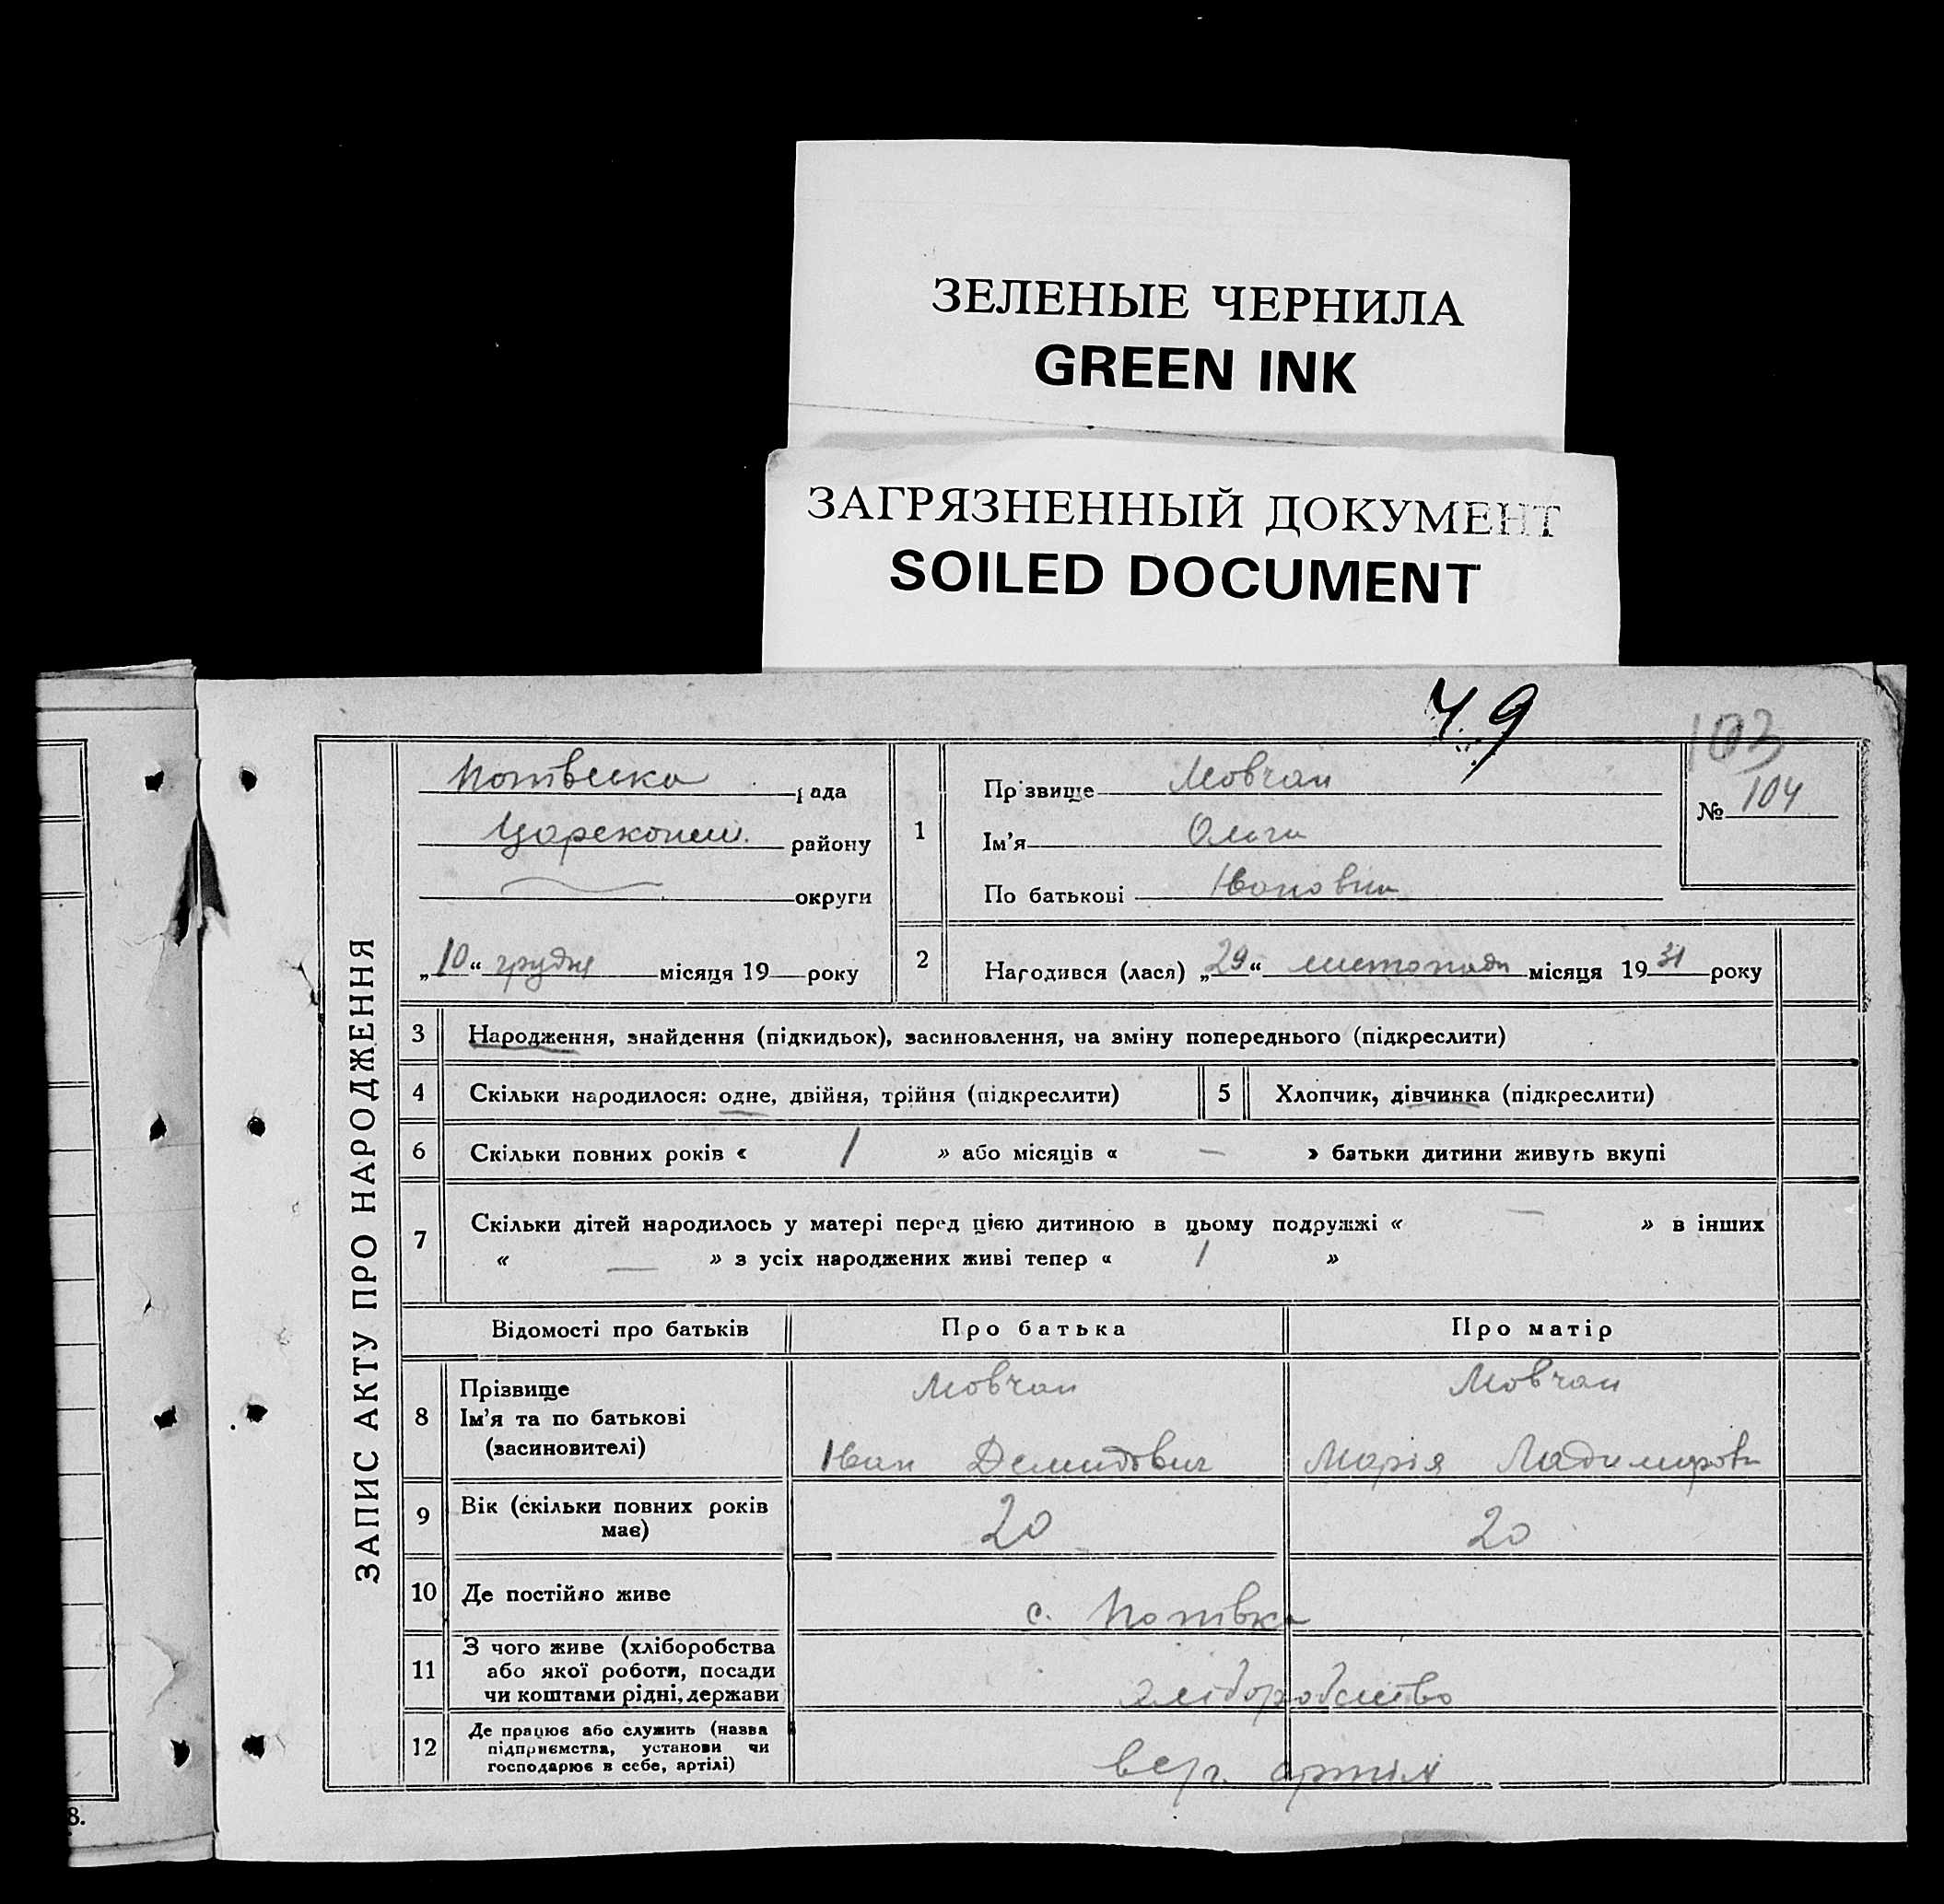 ЗЕЛЕНЫЕ ЧЕРНИЛА
GREEN INK
ЗАГРЯЗНЕННЫЙ ДОКУМЕНТ
SOILED DOCUMENT
103
ЗАПИС АКТУ ПРО НАРОДЖЕННЯ
рада
району
округи
„10“ грудня місяця 19 року
1
Прізвище Мовчан
Ім'я Ольга
По батькові Івановна
№ 104
2
Народився (лася) „29“ листопада місяця 1931 року
3 Народження, знайдення (підкидьок), засиновлення, на зміну попереднього (підкреслити)
4 Скільки народилося: одне, двійня, трійня (підкреслити) 5 Хлопчик, дівчинка (підкреслити)
6 Скільки повних років « 1 » або місяців « — » батьки дитини живуть вкупі
7 Скільки дітей народилось у матері перед цією дитиною в цьому подружжі « — » в інших
« — » з усіх народжених живі тепер « 1 »
Відомості про батьків Про батька Про матір
8 Прізвище Мовчан Мовчан
Ім'я та по батькові
(засиновителі) Іван Демидович Марія
9 Вік (скільки повних років має) 20 20
10 Де постійно живе с. Попівка
11 З чого живе (хліборобства
або якої роботи, посади
чи коштами рідні, держави хліборобство
12 Де працює або служить (назва
підприємства, установи чи
господарює в себе, артілі) артіл
8.